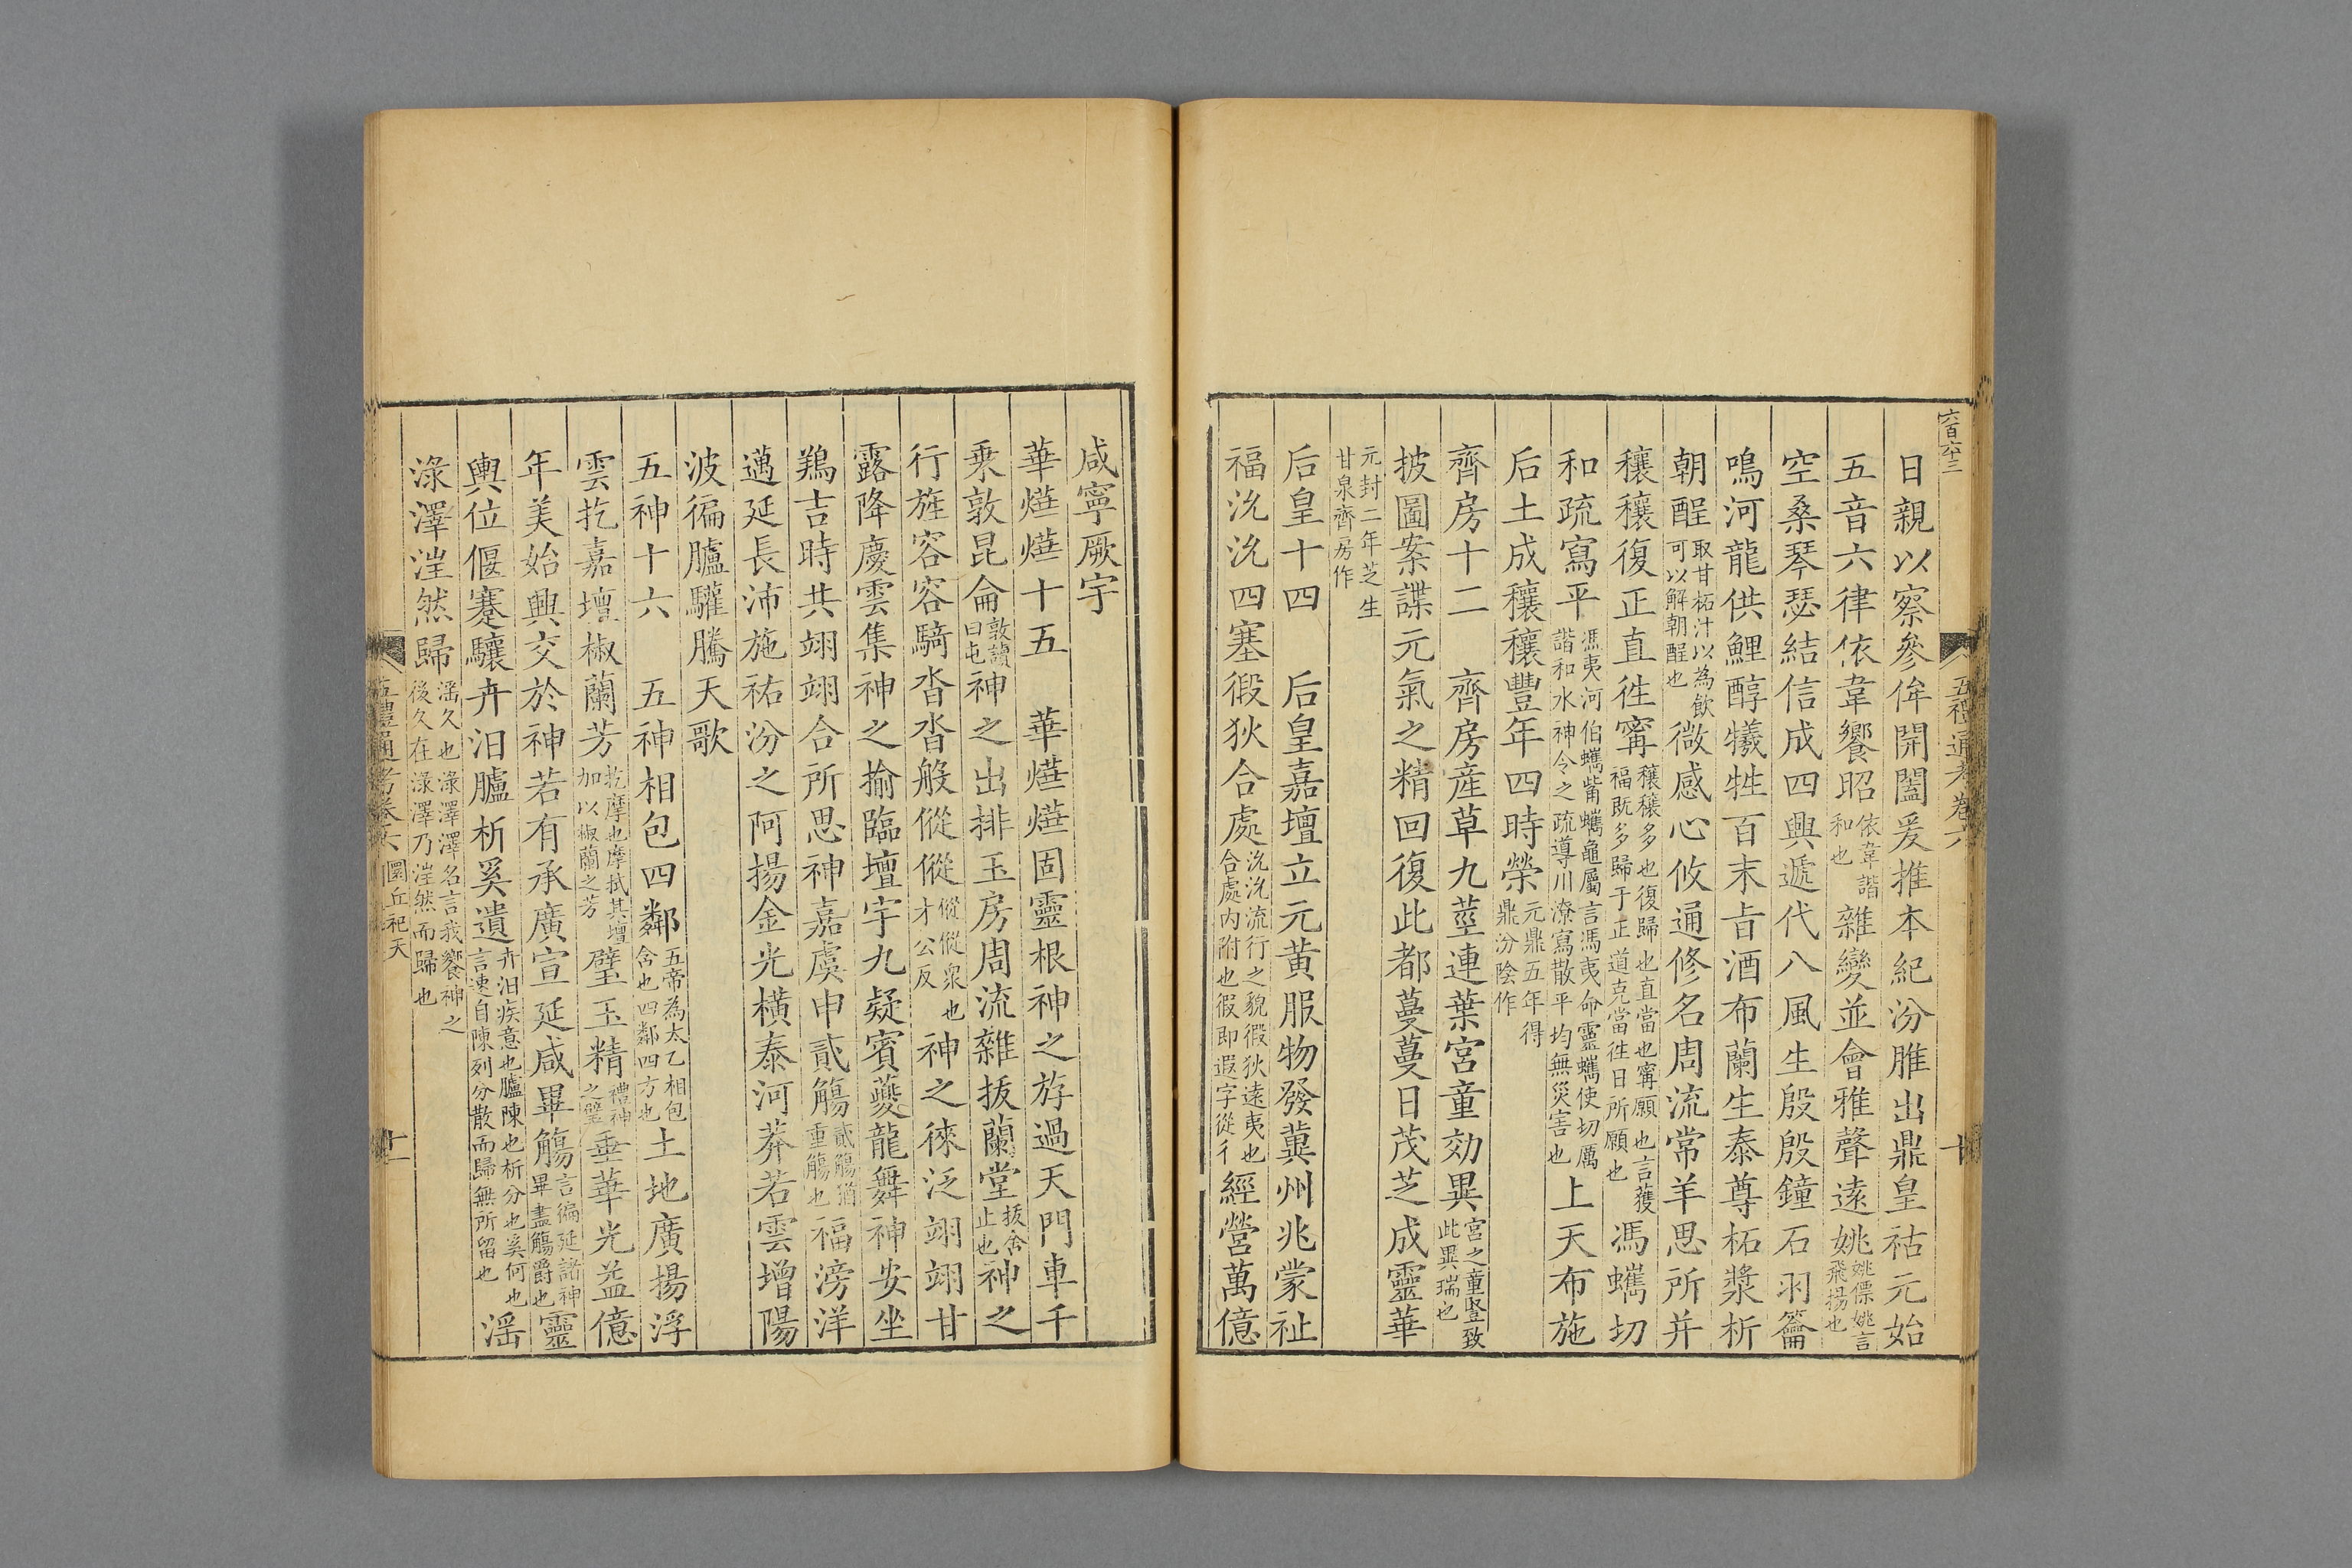 六百六十三
五禮通考卷六
十
日親以察參侔開闔爰推本紀汾脽出鼎皇祜元始
五音六律依韋饗昭依韋諧和也雜變並會雅聲遠姚姚僄姚言飛揚也
空桑琴瑟結信成四興遞代八風生殷殷鐘石羽籥
鳴河龍供鯉醇犧牲百末旨酒布蘭生泰尊柘漿析
朝酲取甘柘汁以為飲可以解朝酲也微感心攸通修名周流常羊思所并
穰穰復正直徃甯穰穰多也復歸也直當也甯願也言獲福既多歸于正道克當徃日所願也馮蠵切
和疏寫平馮夷河伯蠵觜蠵龜屬言馮夷命靈蠵使切厲諧和水神令之疏導川潦寫散平均無災害也上天布施
后土成穰穰豐年四時榮元鼎五年得鼎汾陰作
齊房十二　齊房産草九莖連葉宮童効異宮之童豎致此異瑞也
披圖案諜元氣之精回復此都蔓蔓日茂芝成靈華
元封二年芝生甘泉齊房作
后皇十四　后皇嘉壇立元黃服物發冀州兆蒙祉
福沇沇四塞徦狄合處沇沇流行之貌徦狄遠夷也合處内附也徦即遐字從彳經營萬億
咸寧厥宇
華爗爗十五　華爗爗固靈根神之斿過天門車千
乘敦昆侖敦讀曰屯神之出排玉房周流雜拔蘭堂拔舍止也神之
行旌容容騎沓沓般傱傱傱傱衆也才公反神之徠泛翊翊甘
露降慶雲集神之揄臨壇宇九疑賓夔龍舞神安坐
鵷吉時共翊翊合所思神嘉虞申貳觴貳觴猶重觴也福滂洋
邁延長沛施祐汾之阿揚金光横泰河莽若雲增陽
波徧臚驩騰天歌
五神十六　五神相包四鄰五帝為太乙相包舍也四鄰四方也土地廣揚浮
雲扢嘉壇椒蘭芳扢摩也摩拭其壇加以椒蘭之芳璧玉精禮神之璧垂華光益億
年美始興交於神若有承廣宣延咸畢觴言徧延諸神畢盡觴爵也靈
輿位偃蹇驤卉汨臚析奚遺卉汨疾意也臚陳也析分也奚何也言速自陳列分散而歸無所留也滛
淥澤滛然歸滛久也淥澤澤名言我饗神之後久在淥澤乃滛然而歸也
五禮通考卷六　圜丘祀天
十一